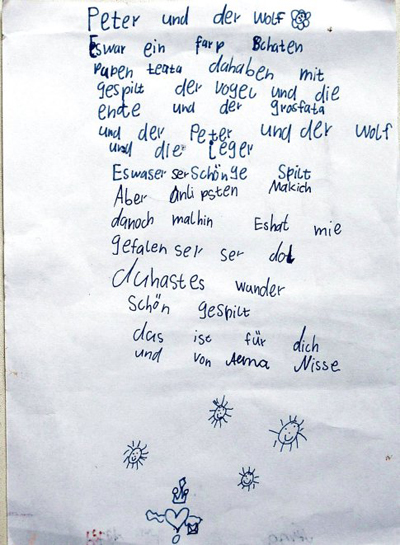 Peter und der wolf
Eswar ein farp Schaten
papen teata dahaben mit
gespilt der vogel und die
ente und der grosfata
und der Peter und der wolf
und die Jeger
Eswaser serschönge spilt
Aber Anli psten Makich
danoch malhin Eshat mie
gefalen ser ser dol
duhastes wunder
schön gespilt
das ise für dich
und von Nisse